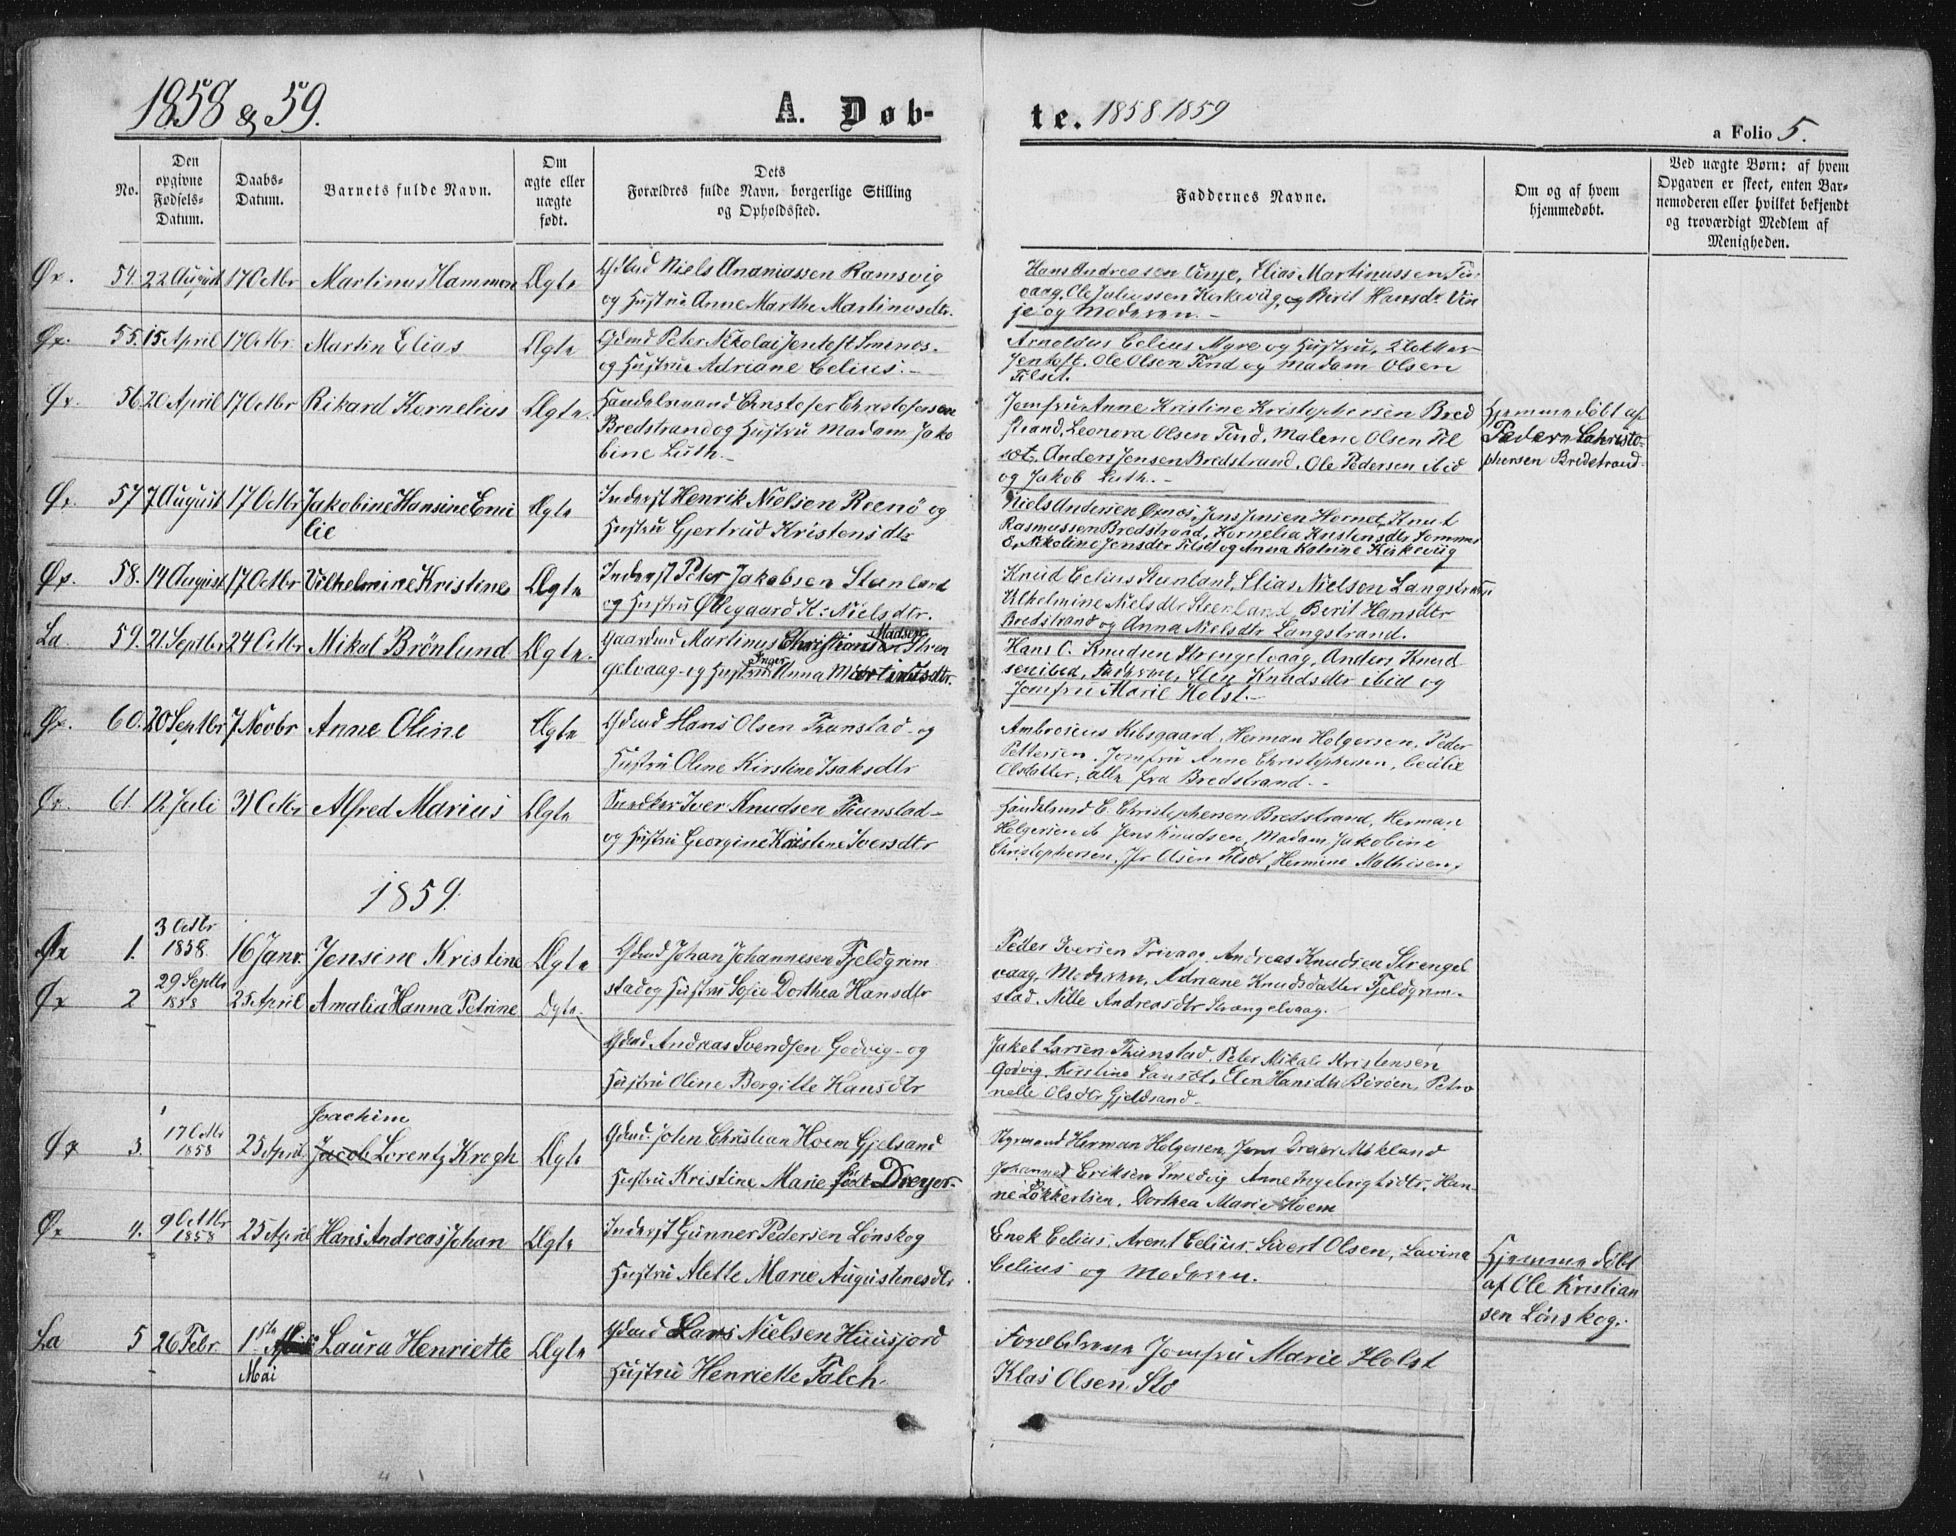 1858 & 59.
A. Døb-
te. 1858 1859
a Folio 5.
No.
Den
opgivne
Fødsels-
Datum.
Daabs-
Datum.
Barnets fulde Navn.
Om
ægte eller
uægte
født.
Dets
Forældres fulde Navn, borgerlige Stilling
og Opholdssted.
Faddernes Navne.
Om og af hvem
hjemmedøbt.
Ved uægte Børn: af hvem
Opgaven er skeet, enten Bar-
nemoderen eller hvilket bekjendt
og troværdigt Medlem af
Menigheden.
Øx. 54. 22 August 17 Octbr Martinus Hammon Ægte
Gdmd Niels Ananiassen Ramsvig
og Hustru Anne Marthe Martinusdtr.
Hans Andreasen Vinje, Elias Martinussen
vaag, Ole Juliussen Kirkeviig, og Birit Hansdr Vin
je og Moderen.-
Øx. 55. 15 April 17 Octbr Martin Elias Ægte
Gdmd Peter Nikolai Jentoft Smines.
og Hustru Adriane Celius.-
Arnoldus Celius Myre og Hustru, Klokker
Jentoft. Ole Olsen Tind og Madam Olsen
Tilset.
Øx. 56. 20 April 17 Octbr Rikard Kornelius Ægte.
Handelsmand Christofersen
Bredstrand og Hustru Madam Jako
bine Luth.-
Jomfru Anne Kristine Kristophersen Bred
strand, Leonora Olsen Tind, Malene Olsen Til
set, Anders Jensen Bredstrand, Ole Pedersen ibid
og Jakob Luth.-
Hjemmedøbt af
Pedern Cahristo-
phersen Bredstrand.
Øx. 57 7 August 17 Octbr Jakobine Hansine Emi
lie Ægte
Inderst Henrik Nielsen Reenø og
Hustru Gjertrud Kristensdtr
Niels Andersen Øxnes, Jens Jensen Hornet, Knut
Rasmussen Bredstrand, Kornelia Kristensdtr Sommer
ø, Nikoline Jensdtr Tilset og Anna Katrine Kirkeviig
Øx. 58. 14 August 17 Octbr Vilhelmine Kristine Ægte
Inderst Peter Jakobsen Steenland
og Hustru Ollegaard K: Nielsdtr.
Knud Celius Steenland, Elias Nielsen Langstrand
Vilhelmine Nielsdtr Steenland, Berit Hansdtr
Bredstrand og Anna Nielsdtr Langstrand.
La. 59. 21 Septbr 24 Octbr Mikal Brönlund Ægte.
Madsen
Gaardmd Martinus Christiansen Stren
Inger
gelvaag- og Hustru Anna Martinusdtr.
Hans C. Knudsen Strengelvaag, Anders Knud
sen ibid, Faderen, Elen Knudsdtr ibid og
Jomfru Marie Holst.-
Øx. 60. 20 Septbr 7 Novbr Anne Oline Ægte
Gdmd Hans Olsen Tunstad- og
Hustru Oline Kirstine Isaksdtr
Ambrosius Kibsgaard, Herman Holgersen, Peder
Pettersen, Jomfru Anne Christophersen, Cecilie
Olsdatter; alle fra Bredstrand.-
Øx. 61. 12 Juli 31 Octbr Alfred Marius Ægte
Iver Knudsen Tunstad-
og Hustru Georgine Kristine Iversdtr
Handelsmd C. Christophersen Bredstrand, Herman
Holgersen ib Jens Knudsen, Madam Jakobine
Christophersen, Jfr Olsen Tilset, Hermine Mathisen,
1859.
Øx 1. 3 Octbr
1858. 16 Janr. Jensine Kristine Ægte
Gdmd Johan Johannesen Fjeldgrim
stad og Hustru Sofie Dorthea Hansdtr
Peder Iversen Frivaag, Andreas Knudsen Strengel
vaag, Moderen, Adriane Knudsdatter Fjeldgrim-
stad. Nille Andreasdtr Strængelvaag.
Øx 2 29 Septbr
1858 25 April Amalia Hanna Petrine Ægte.
Gdmd Andreas Svendsen Godvig- og
Hustru Oline Bergitte Hansdtr
Jakob Larsen Tunstad, Peter Mikal Kristensen
Godvig, Kirstine, Elen Hansdtr Börøen, Petro
nelle Olsdtr Gjeldsand.
Øx 3. 17 Octbr
1858 25 April Joachim
Jacob Lorentz Krogh Ægte
Gdmd. John Christian Hoem Gjelsand
Hustru Kristine Marie født Dreyer.
Styrmand Herman Holgersen, Jens Dreier Mikland
Johannes Eriksen Smedvig, Anne Ingebrigtsdtr, Han-
ne Lökkertsen, Dorthea Marie Hoem
Øx 4. 9 Octbr
1858 25 April Hans Andreas Johan Ægte
Inderst Gunner Pedersen Lönskog
Hustru Alette Marie Augustinesdtr.
Enok Celius, Arent Celius, Sivert Olsen, Lavina
Celius og Moderen.
Hjemmedøbt
af Ole Kristian
sen Lönskog.
La 5 26 Febr 1ste
Mai Laura Henriette Ægte
Gdmd Lars Nielsen Huusjord
Hustru Henriette Falch.
Forældrene Jomfru Marie Holst
Klas Olsen Stø